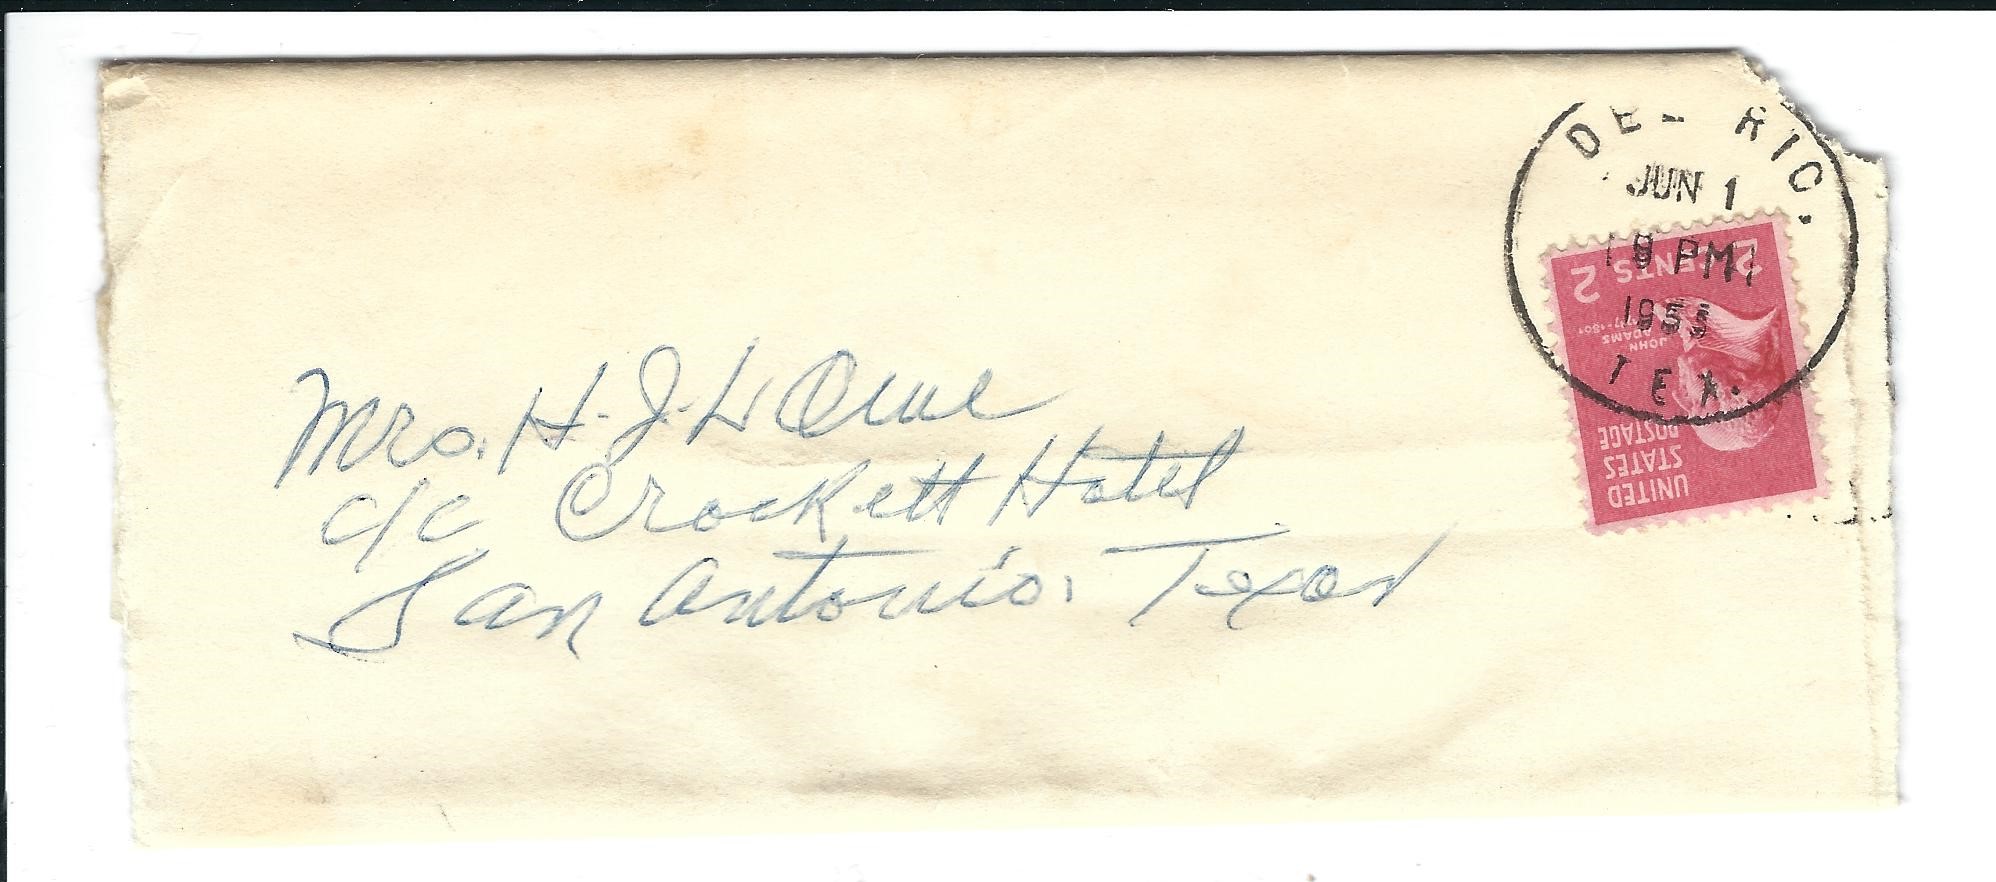 DEL RIO.
JUN 1
PM
1953
TEX.
2 CENTS 2
JOHN ADAMS
UNITED STATES POSTAGE
Mrs. H. J.
c/o Crockett Hotel
San Antonio, Texas